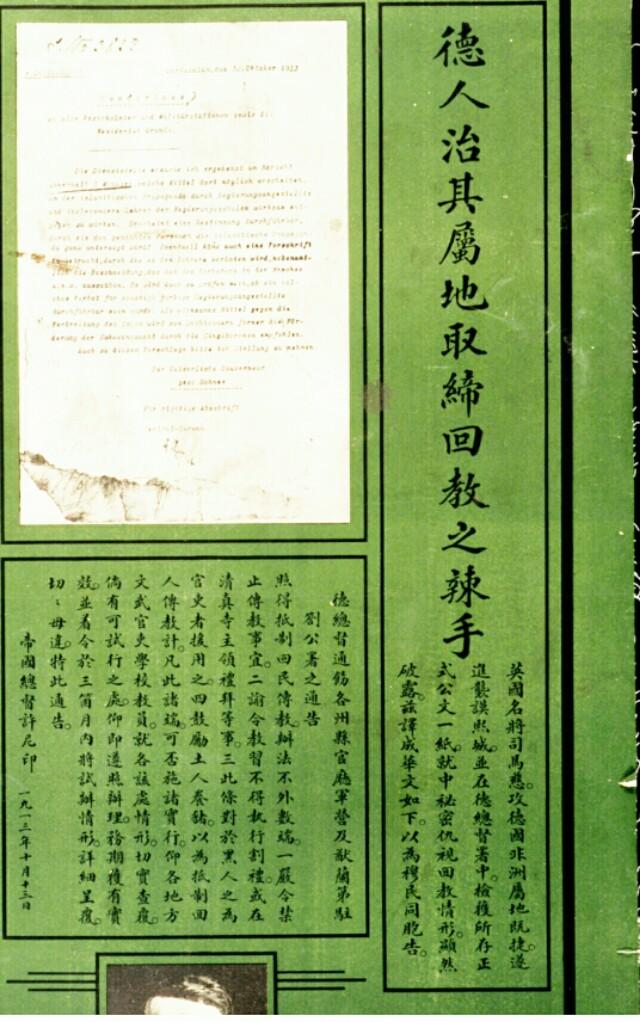 德人治其屬地取締回教之辣手
英國名將司馬懋攻德國非洲屬地既捷遂
進襲謨熙城並在德總督署中檢獲所存正
式公文一紙就中秘密仇視回教情形顯然
破露茲譯成華文如下以為穆民同胞告
Daressalam, den 13. Oktober 1913
an alle Bezirksämter und Militärstationen sowie die
Die Dienststelle ersuche ich ergebenst um Bericht
welche Mittel dort möglich erscheinen,
um der islamitischen Propaganda durch Regierungsangestellte
und insbesondere Lehrer der Regierungsschulen wirksam
durch die den genannten Personen die islamitische Propagan-
da ganz untersagt wird? Eventuell käme auch eine Vorschrift
in Betracht, durch die es den Lehrern verboten wird,
u.s.w. auszuüben. Es wird auch zu prüfen sein, ob ein sol-
ches Verbot für sonstige farbige Regierungsangestellte
durchführbar sein würde. Als wirksames Mittel gegen die
Verbreitung des Islam wird von Sachkennern ferner die För-
derung der Schweinezucht durch die Eingeborenen empfohlen.
Auch zu diesem Vorschlage bitte ich Stellung zu nehmen
Der Kaiserliche Gouverneur
gez: Schnee
Für richtige Abschrift
德總督通飭各州縣官廳軍營及猷蘭第駐
劄公署之通告
照得抵制回民傳教辦法不外數端一嚴令禁
止傳教事宜二諭令教習不得執行割禮或在
清真寺主領禮拜等事三此條對於黑人之為
官吏者援用之四鼓勵土人養豬以為抵制回
人傳教計凡此諸端可否施諸實行仰各地方
文武官吏學校教員就各該處情形切實查覆
倘有可試行之處仰即遵照辦理務期獲有實
效並着令於三箇月內將試辦情形詳細呈覆
切切毋違特此通告
帝國總督許尼印 一九一三年十月十三日